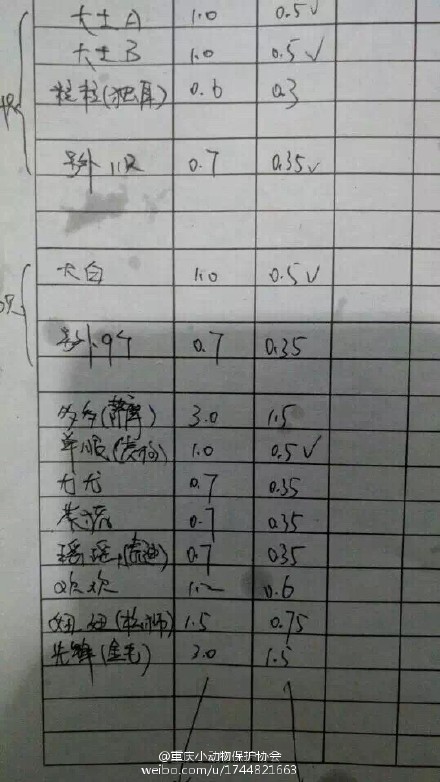 大土A 1.0 0.5√
大土B 1.0 0.5√
粒粒(独耳) 0.6 0.3
号外11只 0.7 0.35√
大白 1.0 0.5√
号外9个 0.7 0.35
多多(萨摩) 3.0 1.5
单眼 1.0 0.5√
尤尤 0.7 0.35
0.7 0.35
瑶瑶 0.7 0.35
欢欢 1.2 0.6
妞妞(松狮) 1.5 0.75
先锋(金毛) 3.0 1.5
@重庆小动物保护协会
weibo.com/u/1744821663